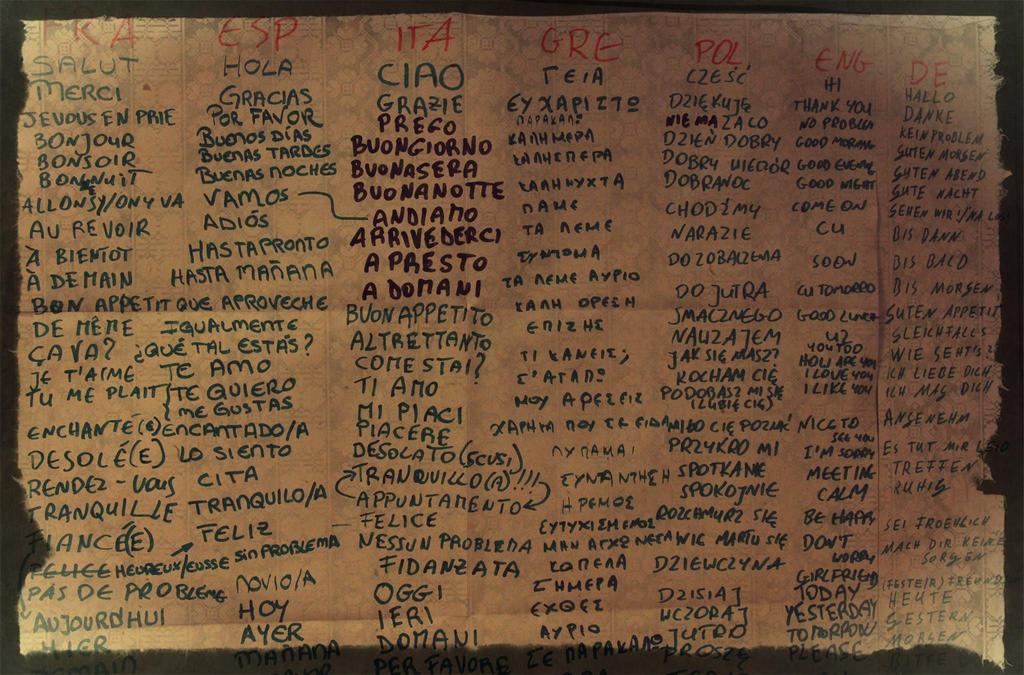 FRA ESP ITA GRE POL ENG DE
SALUT HOLA CIAO ΓΕΙΑ CZEŚĆ HI HALLO
MERCI GRACIAS GRAZIE ΕΥΧΑΡΙΣΤΩ DZIĘKUJĘ THANK YOU DANKE
JEVOUS EN PRIE POR FAVOR PREGO ΠΑΡΑΚΑΛΩ NIE MA ZA CO NO PROBLEM KEIN PROBLEM
BONJOUR BUENOS DÍAS BUONGIORNO ΚΑΛΗΜΕΡΑ DZIEŃ DOBRY GOOD MORNING GUTEN MORGEN
BONSOIR BUENAS TARDES BUONASERA ΚΑΛΗΣΠΕΡΑ DOBRY WIECZÓR GOOD EVENING GUTEN ABEND
BONNUIT BUENAS NOCHES BUONANOTTE ΚΑΛΗΝΥΧΤΑ DOBRANOC GOOD NIGHT GUTE NACHT
ALLONSY/ONY VA VAMOS ANDIAMO ΠΑΜΕ CHODŹMY COME ON GEHEN WIR!/NA LOS
AU REVOIR ADIÓS ARRIVEDERCI ΤΑ ΛΕΜΕ NARAZIE CU BIS DANN
À BIENTOT HASTA PRONTO A PRESTO ΣΥΝΤΟΜΑ DO ZOBACZENIA SOON BIS BALD
À DEMAIN HASTA MAÑANA A DOMANI ΤΑ ΛΕΜΕ ΑΥΡΙΟ DO JUTRA CU TOMORRO BIS MORGEN
BON APPETIT QUE APROVECHE BUON APPETITO ΚΑΛΗ ΟΡΕΞΗ SMACZNEGO GOOD LUNCH GUTEN APPETIT
DE MÊME IGUALMENTE ALTRETTANTO ΕΠΙΣΗΣ NAWZAJEM U2 YOU TOO GLEICHFALLS
ÇA VA? ¿QUÉ TAL ESTÁS? COME STAI? ΤΙ ΚΑΝΕΙΣ; JAK SIĘ MASZ? HOW ARE YOU WIE GEHT'S?
JE T'AIME TE AMO TI AMO Σ'ΑΓΑΠΩ KOCHAM CIĘ I LOVE YOU ICH LIEBE DICH
TU ME PLAIT TE QUIERO MI PIACI ΜΟΥ ΑΡΕΣΕΙΣ PODOBASZ MI SIĘ I LIKE YOU ICH MAG DICH
ME GUSTAS (LUBIĘ CIĘ)
ENCHANTÉ(E) ENCANTADO/A PIACERE ΧΑΡΗΚΑ ΠΟΥ ΣΕ ΕΙΔΑ MIŁO CIĘ POZNAĆ NICE TO SEE YOU ANGENEHM
DESOLÉ(E) LO SIENTO DESOLATO (SCUSI) ΛΥΠΑΜΑΙ PRZYKRO MI I'M SORRY ES TUT MIR LEID
RENDEZ-VOUS CITA TRANQUILLO(A)!!! ΣΥΝΑΝΤΗΣΗ SPOTKANIE MEETING TREFFEN
TRANQUILLE TRANQUILO/A APPUNTAMENTO ΗΡΕΜΟΣ SPOKOJNIE CALM RUHIG
FIANCÉ(E) FELIZ FELICE ΕΥΤΥΧΙΣΜΕΝΟΣ ROZCHMURZ SIĘ BE HAPPY SEI FROEHLICH
FELICE HEUREUX/EUSSE SIN PROBLEMA NESSUN PROBLEMA ΜΗΝ ΑΓΧΩΝΕΣΑΙ NIE MARTW SIĘ DON'T WORRY MACH DIR KEINE SORGEN
PAS DE PROBLEME NOVIO/A FIDANZATA ΚΟΠΕΛΑ DZIEWCZYNA GIRLFRIEND (FESTE/R) FREUND/IN
AUJOURDHUI HOY OGGI ΣΗΜΕΡΑ DZISIAJ TODAY HEUTE
HIER AYER IERI ΕΧΘΕΣ WCZORAJ YESTERDAY GESTERN
DEMAIN MAÑANA DOMANI ΑΥΡΙΟ JUTRO TOMORROW MORGEN
PER FAVORE ΣΕ ΠΑΡΑΚΑΛΩ PROSZĘ PLEASE BITTE